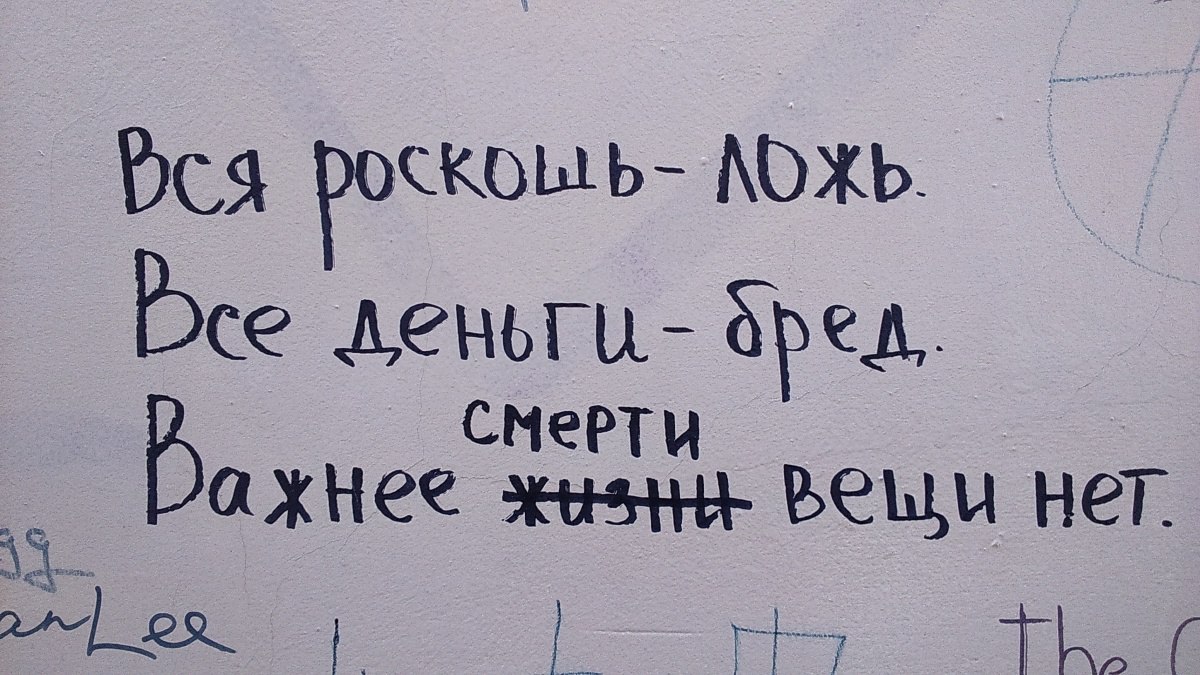 Вся роскошь - ложь.
Все деньги - бред.
смерти
Важнее жизни вещи нет.
Lee
the